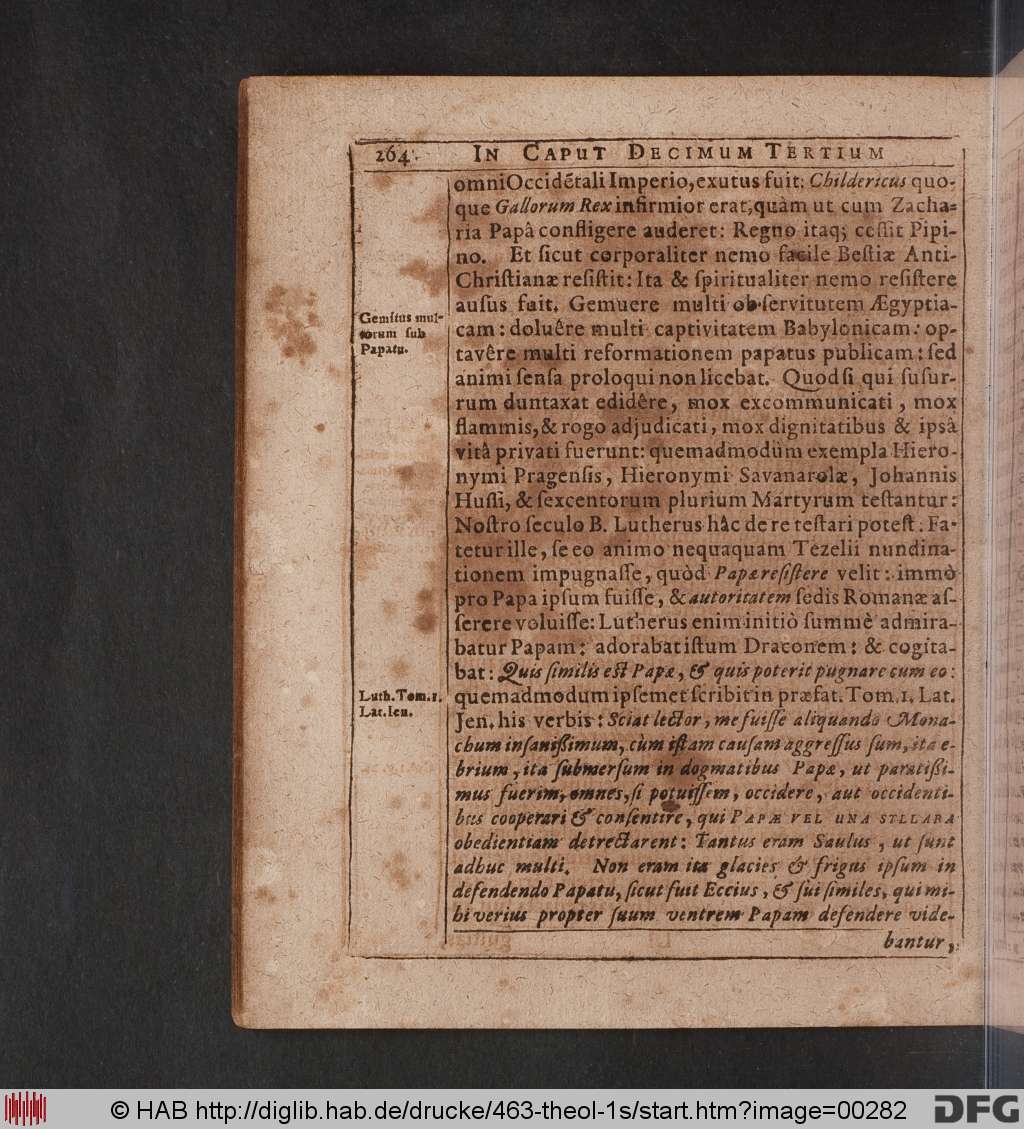 264. IN CAPUT DECIMUM TERTIUM
omni Occidẽtali Imperio, exutus fuit: Childericus quo-
que Gallorum Rex infirmior erat, quàm ut cum Zacha-
ria Papâ confligere auderet: Regno itaq; cessit Pipi-
no. Et sicut corporaliter nemo facile Bestiæ Anti-
Christianæ resistit: Ita & spiritualiter nemo resistere
ausus fuit. Gemuere multi ob servitutem Ægyptia-
Gemitus mul-
torum sub
Papatu.
cam: doluêre multi captivitatem Babylonicam: op-
tavêre multi reformationem papatus publicam: sed
animi sensa proloqui non licebat. Quod si qui susur-
rum duntaxat edidêre, mox excommunicati, mox
flammis, & rogo adjudicati, mox dignitatibus & ipsâ
vitâ privati fuerunt: quemadmodùm exempla Hiero-
nymi Pragensis, Hieronymi Savanarolæ, Johannis
Hussi, & sexcentorum plurium Martyrum testantur:
Nostro seculo B. Lutherus hâc de re testari potest: Fa-
tetur ille, se eo animo nequaquam Tezelii nundina-
tionem impugnasse, quòd Papæ resistere velit: immò
pro Papa ipsum fuisse, & autoritatem sedis Romanæ as-
serere voluisse: Lutherus enim initiò summè admira-
batur Papam: adorabat istum Draconem: & cogita-
bat: Quis similis est Papæ, & quis poterit pugnare cum eo:
Luth. Tom. 1.
Lat. Ien.
quemadmodum ipsemet scribit in præfat. Tom. 1. Lat.
Jen. his verbis: Sciat lector, me fuisse aliquando Mona-
chum insanissimum, cùm istam causam aggressus sum, ita e-
brium, ita submersum in dogmatibus Papæ, ut paratissi-
mus fuerim, omnes, si potuissem, occidere, aut occidenti-
bus cooperari & consentire, qui PAPÆ VEL UNA SYLLABA
obedientiam detrectarent: Tantus eram Saulus, ut sunt
adhuc multi. Non eram ita glacies & frigus ipsum in
defendendo Papatu, sicut fuit Eccius, & sui similes, qui mi-
hi verius propter suum ventrem Papam defendere vide-
bantur,
© HAB http://diglib.hab.de/drucke/463-theol-1s/start.htm?image=00282
DFG